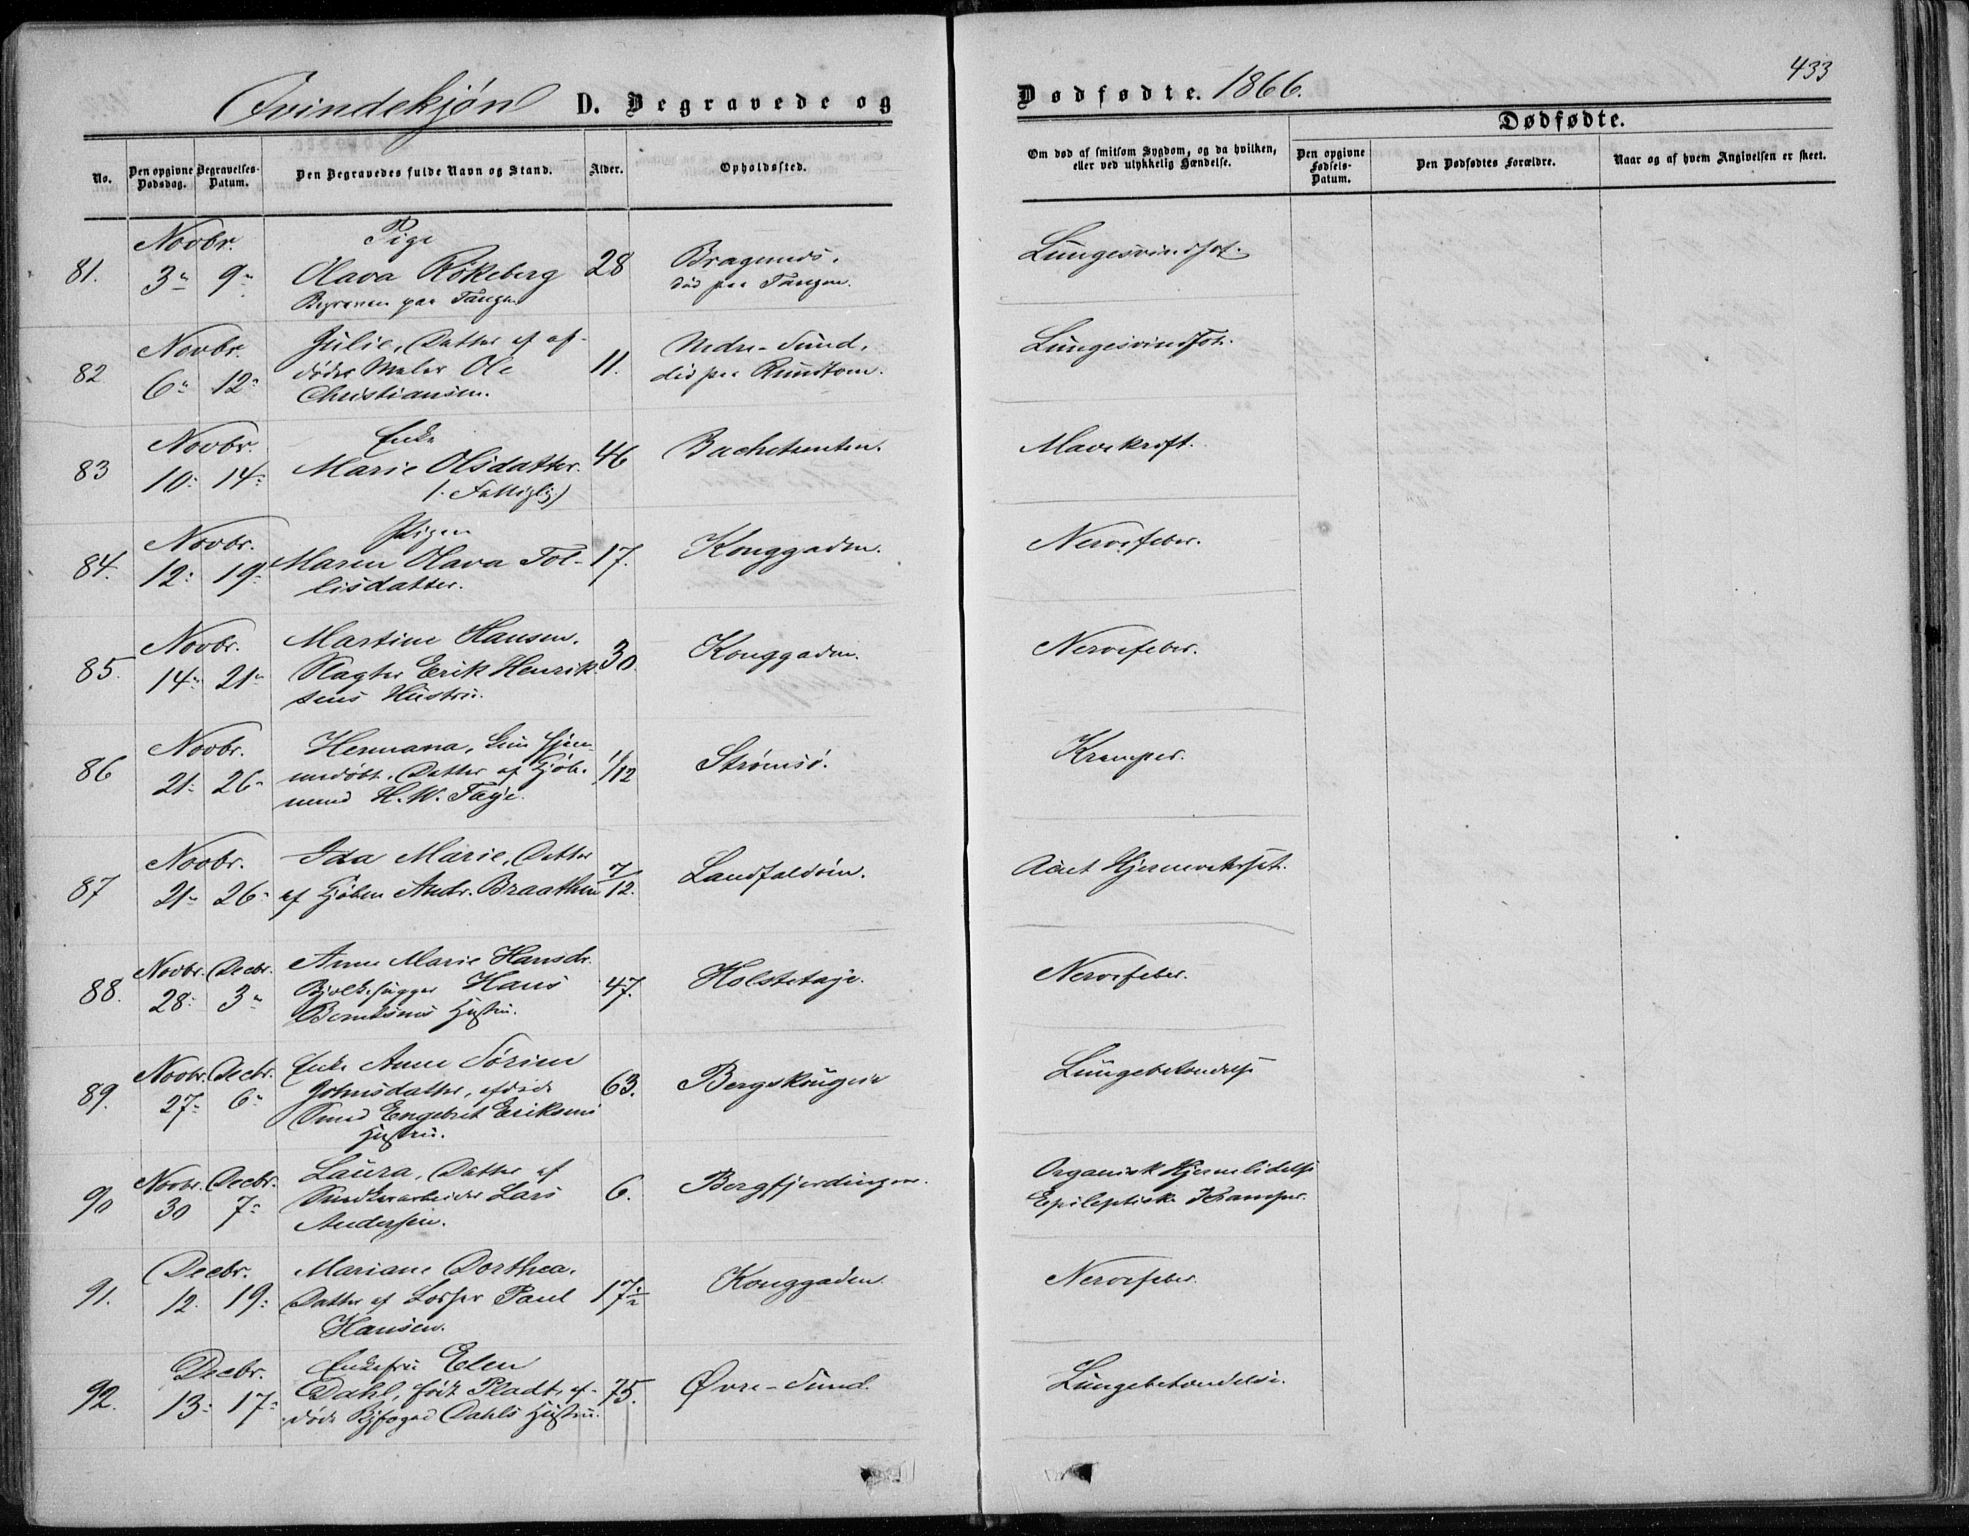 433
Qvindekjøn D. Begravede og
Dødfødte. 1866.
No.
Den opgivne Dødsdag.
Begravelses-Datum.
Den Begravedes fulde Navn og Stand.
Alder.
Opholdssted.
Om død af smitsom Sygdom, og da hvilken,
eller ved ulykkelig Hændelse.
Dødfødte.
Den opgivne Fødsels-Datum.
Den Dødfødtes Forældre.
Naar og af hvem Angivelsen er skeet.
81. Novbr. 3 9 Pige
Olava Kökeberg
Begraven paa Tangen
28 Bragernes,
död paa Tangen.
Lungesvindsot.
82 Novbr. 6 12 Julie, Datter af af-
döde Maler Ole
Christiansen.
11. Nedre-Sund,
död paa
Lungesvindsot.
83 Novbr. 10 14 Enke
Marie Olsdatter.
(Fattiglig)
46 Bachetrenten.
Mavekræft.
84. Novbr. 12 19 Pigen
Maren Olava Tol-
lisdatter.
17. Konggaden.
Nervefeber.
85. Novbr. 14 21 Martine Hansen,
Slagter Erik Henrik-
sens Hustru.
30. Konggaden.
Nervefeber.
86 Novbr. 21 26 Hermana, kun hjem-
medöbt, Datter af Kjöb-
mand H. W. Faye.
1/12 Strömsö.
Kramper.
87 Novbr. 21 26 Ida Marie, Datter
af Kjöbm Andr. Braathen
7/12. Landfaldöen.
Acut
88. Novbr. 28 Decbr. 3 Anne Marie Hansdr.
Bjelkehugger Hans
Berntsens Hustru.
47. Holstetage.
Nervefeber.
89. Novbr. 27 Decbr. 6 Enke Anne Sörine
Johnsdatter, afdöde
Smed Engebret Eriksens
Hustru.
63. Bergskougen
Lungebetændelse
90 Novbr. 30 Decbr. 7 Laura, Datter af
Lars
Andersen.
6. Bergfjerdingen.
Organisk Hjernelidelse
Epileptiske Kramper.
91. Decbr. 12 19 Mariane Dorthea,
Datter af Losser Paul
Hansen.
17 1/2 Konggaden
Nervefeber.
92. Decbr. 13 17 Enkefru Elen
Dahl, födt Pladt, af-
döde Byfoged Dahls Hustru.
75. Øvre-Sund.
Lungebetændelse.